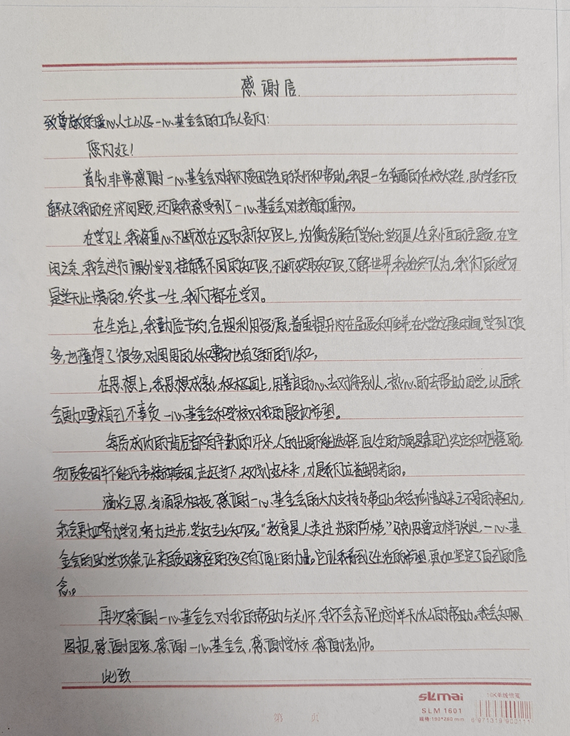 感谢信
致尊敬的爱心人士以及一心基金会的工作人员们:
您们好!
首先,非常感谢一心基金会对我们贫困学生的关怀和帮助。我是一名普通的在校大学生,助学金不仅
解决了我的经济问题,还让我感受到了一心基金会对教育的重视。
在学习上,我将重心不断放在汲取新知识上,均衡发展。学习是人生永恒的主题,在空
闲之余,我会进行课外学习,接触不同的知识,不断获取知识,了解世界,我始终认为,我们的学习
是学无止境的,终其一生,我们都在学习。
在生活上,我勤俭节约,合理利用资源,着重提升内在品质和修养,在大学这段时间,学到了很
多,也懂得了很多,对周围的人和事物也有了新的认知。
在思想上,我思想成熟,积极向上,用善良的心去对待别人,热心的去帮助同学,以后我
会更加要求自己,不辜负一心基金会和学校对我的殷切希望。
每份成功的背后都有辛勤的汗水,人的出生不能选择,而人生的方向是靠自己决定和把握的,
物质贫困并不能代表精神贫困,在这当下,规划好未来,才是我们应当思考的。
滴水之恩,当涌泉相报,感谢一心基金会的大力支持与帮助,我会珍惜这来之不易的帮助,
我会更加努力学习,努力进步,学好专业知识。“教育是人类进步的阶梯”,高尔基曾这样说过,一心基
金会的助学政策,让来自贫困家庭的孩子有了向上的力量。它让我看到了生活的希望,更加坚定了自己的信
念。
再次感谢一心基金会对我的帮助与关怀,我不会忘记这份无私的帮助。我会知恩
图报,感谢国家,感谢一心基金会,感谢学校,感谢老师。
此致
第 页
skmai
SLM 1601